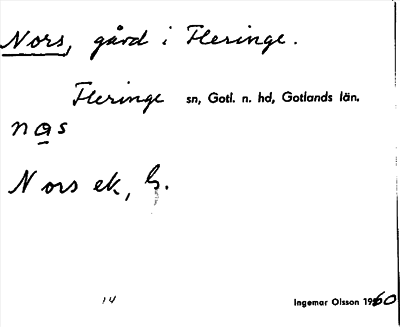 Nors, gård i Fleringe.
Fleringe sn, Gotl. n. hd, Gotlands län.
nas
Nors ek, G.
14
Ingemar Olsson 1960